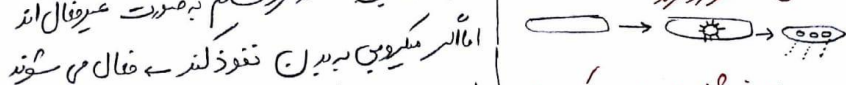 به صورت غیرفعال اند
اما اگر میکروبی به بدن نفوذ کند ← فعال می شوند